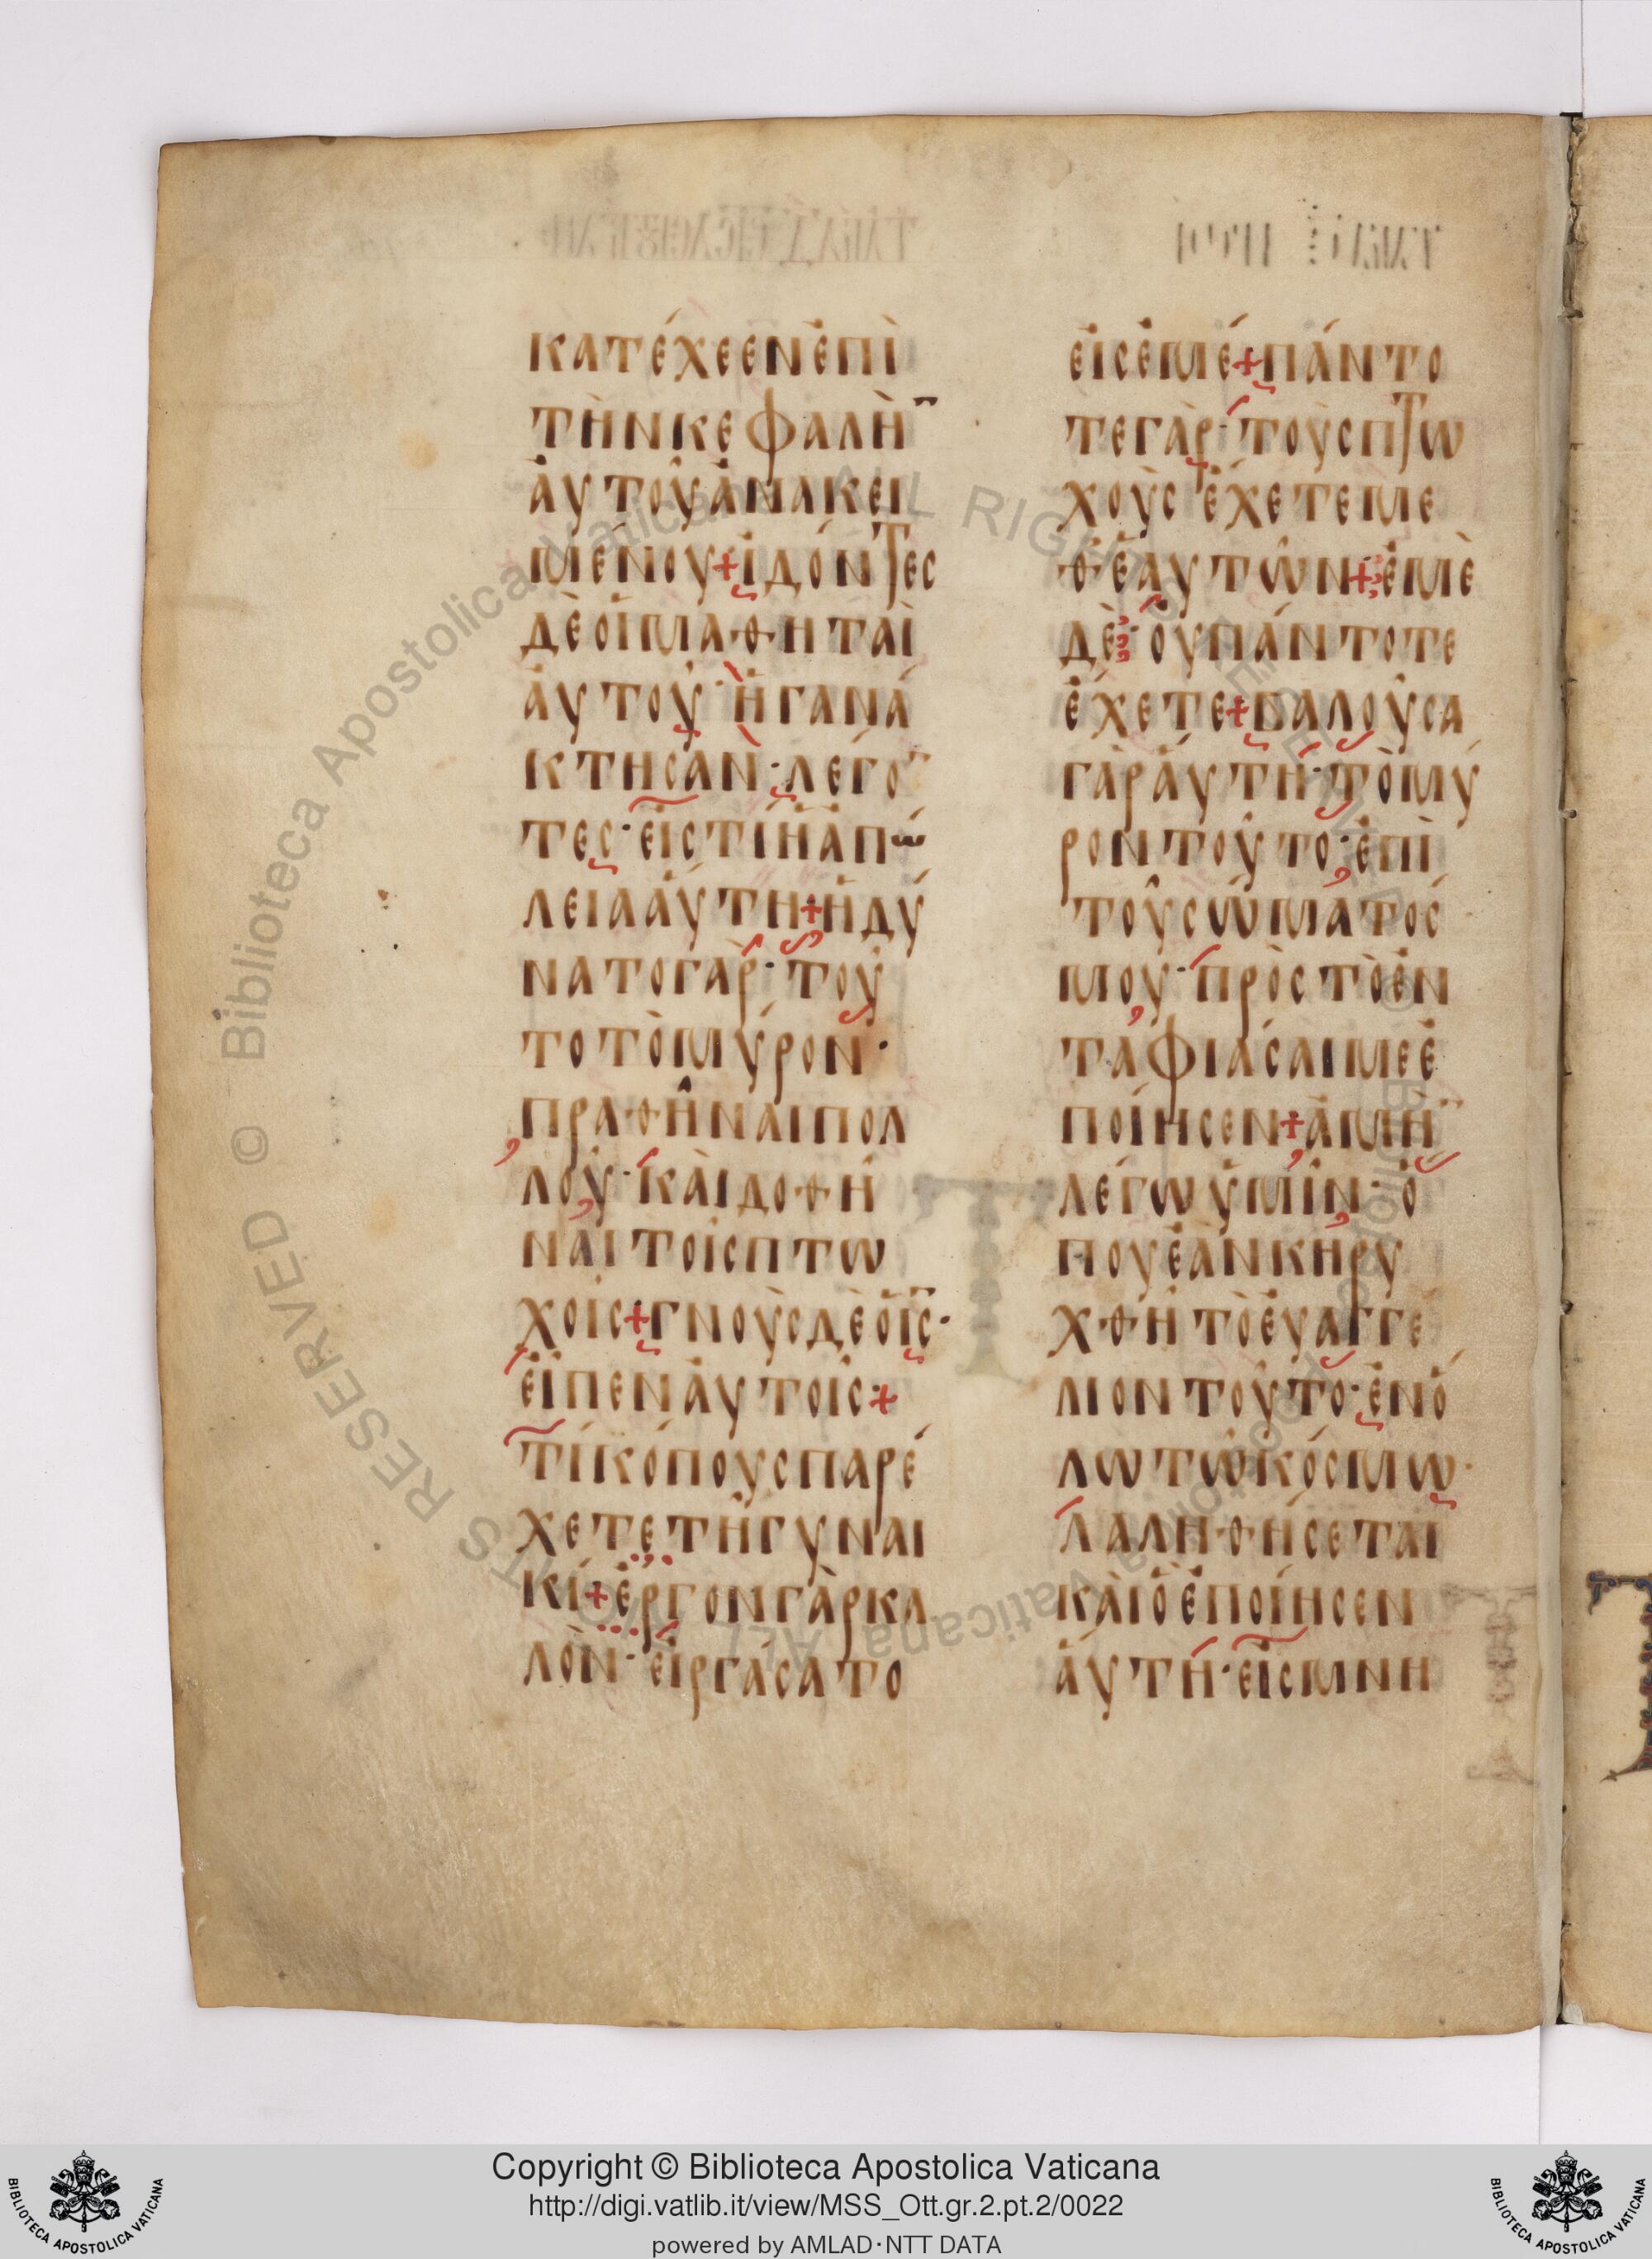 κατέχεεν ἐπὶ
τὴν κεφαλὴ̄
ἀυτοῦ ἀνακει
μένου + ἰδόντες
δὲ οἱ μαθηταὶ
ἀυτοῦ · ἠγανά
κτησαν · λέγο̄
τες · εἰς τί ἡ ἀπώ
λεια ἁύτη + ἠδύ
νατο γὰρ · τοῦ
το τὸ μύρον ·
πραθῆναι πολ
λοῦ · καὶ δοθῆ
ναι τοῖς πτω
χοῖς + γνοὺς δὲ ὁ ις̄ ·
εἶπεν ἀυτοῖς +
τί κόπους παρέ
χετε τῆ γυναι
κί + ἔργον γὰρ κα
λὸν · εἰργάσατο
εἰς ἐμέ + πάντο
τε γὰρ · τοὺς πτω
χοὺς ἔχετε με
θ ἑαυτῶν + ἐμὲ
δὲ · ὀυ πάντοτε
ἔχετε + βαλοῦσα
γὰρ ἁύτη · τὸ μύ
ρον τοῦτο · ἐπὶ
τοῦ σώματός
μου · πρὸς τὸ ἐν
ταφιάσαι με ἐ
ποίησεν + ἀμὴ̄
λέγω ὑμῖν · ὅ
που ἐὰν κηρυ
χθῆ τὸ ἐυαγγέ
λιον τοῦτο · ἐν ὅ
λω τῶ κόσμω ·
λαληθήσεται
καὶ ὃ ἐποίησεν
ἁύτη · εἰς μνη
Copyright © Biblioteca Apostolica Vaticana
http://digi.vatlib.it/view/MSS_Ott.gr.2.pt.2/0022
powered by AMLAD·NTT DATA
BIBLIOTECA APOSTOLICA VATICANA
BIBLIOTECA APOSTOLICA VATICANA